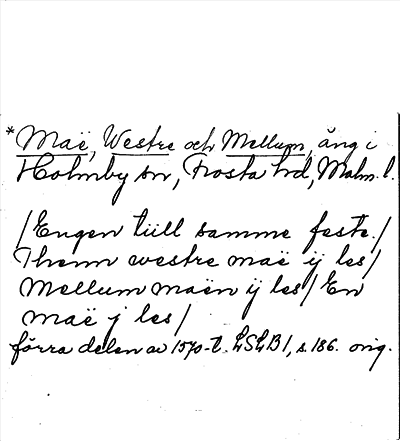 *Maë, Westre och Mellum, äng i
Holmby sn, Frosta hd, Malm. l.
/Engen tiill samme feste./
Thenn westre maë ij les/
Mellum maën ij les/ En
maë j les/
förra delen av 1570-t. LSLB 1, s. 186. orig.